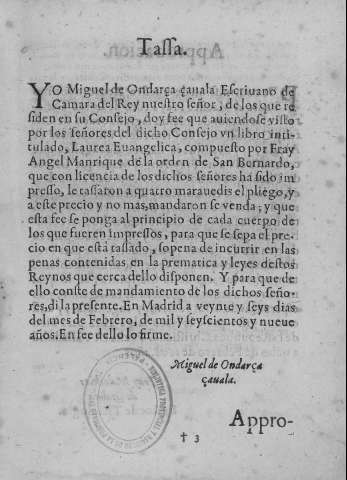 Tassa.
YO Miguel de Ondarça çauala Escriuano de
Camara del Rey nuestro señor, de los que re
siden en su Consejo, doy fee que auiendose visto
por los señores del dicho Consejo vn libro inti-
tulado, Laurea Euangelica, compuesto por Fray
Angel Manrique de la orden de San Bernardo,
que con licencia de los dichos señores ha sido im
presso, le tassaron a quatro marauedis el pliego, y
a este precio y no mas, mandaron se venda; y que
esta fee se ponga al principio de cada cuerpo de
los que fueren impressos, para que se sepa el pre-
cio en que está tassado, sopena de incurrir en las
penas contenidas en la prematica y leyes destos
Reynos que cerca dello disponen. Y para que de
ello conste de mandamiento de los dichos seño-
res, di la presente. En Madrid a veynte y seys dias
del mes de Febrero, de mil y seyscientos y nueue
años. En fee dello lo firme.
Miguel de Ondarça
çauala.
Appro-
† 3